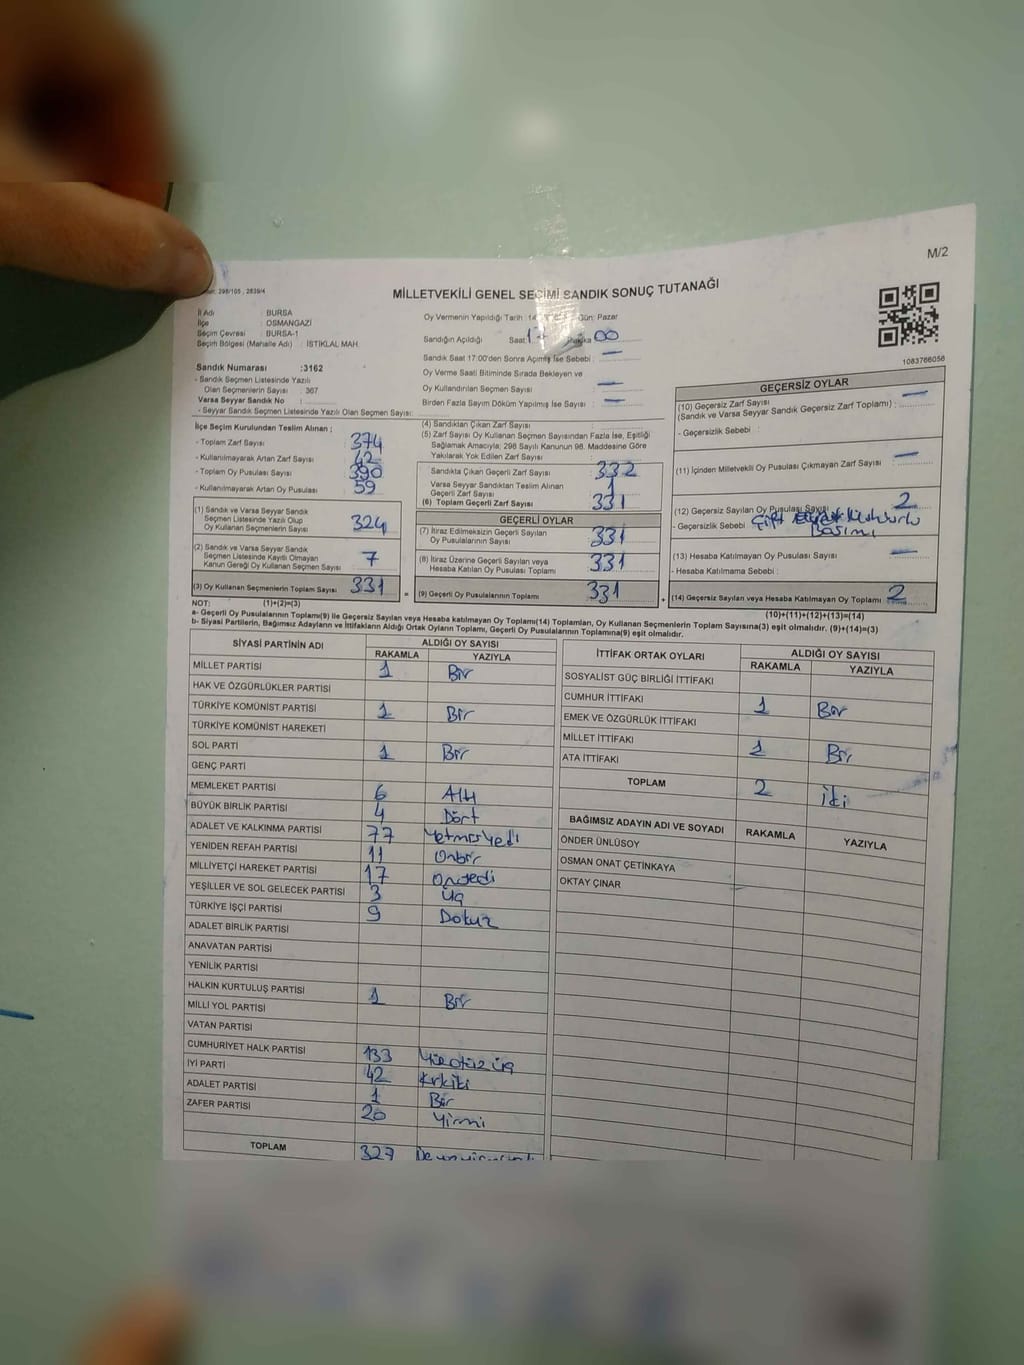 M/2
298/105 , 2839/4
MİLLETVEKİLİ GENEL SEÇİMİ SANDIK SONUÇ TUTANAĞI
İl Adı : BURSA
İlçe : OSMANGAZİ
Seçim Çevresi : BURSA-1
Seçim Bölgesi (Mahalle Adı) : İSTİKLAL MAH.
Sandık Numarası : 3162
- Sandık Seçmen Listesinde Yazılı
Olan Seçmenlerin Sayısı : 367
Varsa Seyyar Sandık No :
- Seyyar Sandık Seçmen Listesinde Yazılı Olan Seçmen Sayısı:
Oy Vermenin Yapıldığı Tarih : 14 Gün: Pazar
Sandığın Açıldığı Saat: Dakika 00
Sandık Saat 17:00'den Sonra Açılmış İse Sebebi : —
Oy Verme Saati Bitiminde Sırada Bekleyen ve
Oy Kullandırılan Seçmen Sayısı : —
Birden Fazla Sayım Döküm Yapılmış İse Sayısı : —
1083766056
İlçe Seçim Kurulundan Teslim Alınan ;
- Toplam Zarf Sayısı : 374
- Kullanılmayarak Artan Zarf Sayısı : 42
- Toplam Oy Pusulası Sayısı : 390
- Kullanılmayarak Artan Oy Pusulası : 59
(1) Sandık ve Varsa Seyyar Sandık
Seçmen Listesinde Yazılı Olup
Oy Kullanan Seçmenlerin Sayısı : 324
(2) Sandık ve Varsa Seyyar Sandık
Seçmen Listesinde Kayıtlı Olmayan
Kanun Gereği Oy Kullanan Seçmenlerin Sayısı : 7
(3) Oy Kullanan Seçmenlerin Toplam Sayısı : 331
(4) Sandıktan Çıkan Zarf Sayısı :
(5) Zarf Sayısı Oy Kullanan Seçmen Sayısından Fazla İse, Eşitliği
Sağlamak Amacıyla; 298 Sayılı Kanunun 98. Maddesine Göre
Yakılarak Yok Edilen Zarf Sayısı :
Sandıkta Çıkan Geçerli Zarf Sayısı : 332
Varsa Seyyar Sandıktan Teslim Alınan
Geçerli Zarf Sayısı : 1
(6) Toplam Geçerli Zarf Sayısı : 331
GEÇERLİ OYLAR
(7) İtiraz Edilmeksizin Geçerli Sayılan
Oy Pusulalarının Sayısı : 331
(8) İtiraz Üzerine Geçerli Sayılan veya
Hesaba Katılan Oy Pusulası Toplamı : 331
= (9) Geçerli Oy Pusulalarının Toplamı : 331
GEÇERSİZ OYLAR
(10) Geçersiz Zarf Sayısı
(Sandık ve Varsa Seyyar Sandık Geçersiz Zarf Toplamı) : —
- Geçersizlik Sebebi :
(11) İçinden Milletvekili Oy Pusulası Çıkmayan Zarf Sayısı : —
(12) Geçersiz Sayılan Oy Pusulası Sayısı : 2
- Geçersizlik Sebebi Çift
Basımı
(13) Hesaba Katılmayan Oy Pusulası Sayısı : —
- Hesaba Katılmama Sebebi :
+ (14) Geçersiz Sayılan veya Hesaba Katılmayan Oy Toplamı : 2
NOT: (1)+(2)=(3) (10)+(11)+(12)+(13)=(14)
a- Geçerli Oy Pusulalarının Toplamı(9) ile Geçersiz Sayılan veya Hesaba katılmayan Oy Toplamı(14) Toplamları, Oy Kullanan Seçmenlerin Toplam Sayısına(3) eşit olmalıdır. (9)+(14)=(3)
b- Siyasi Partilerin, Bağımsız Adayların ve İttifakların Aldığı Ortak Oyların Toplamı, Geçerli Oy Pusulalarının Toplamına(9) eşit olmalıdır.
SİYASİ PARTİNİN ADI ALDIĞI OY SAYISI
RAKAMLA YAZIYLA
MİLLET PARTİSİ 1 Bir
HAK VE ÖZGÜRLÜKLER PARTİSİ
TÜRKİYE KOMÜNİST PARTİSİ 1 Bir
TÜRKİYE KOMÜNİST HAREKETİ
SOL PARTİ 1 Bir
GENÇ PARTİ
MEMLEKET PARTİSİ 6 Altı
BÜYÜK BİRLİK PARTİSİ 4 Dört
ADALET VE KALKINMA PARTİSİ 77 Yetmişyedi
YENİDEN REFAH PARTİSİ 11 Onbir
MİLLİYETÇİ HAREKET PARTİSİ 17 Onyedi
YEŞİLLER VE SOL GELECEK PARTİSİ 3 Üç
TÜRKİYE İŞÇİ PARTİSİ 9 Dokuz
ADALET BİRLİK PARTİSİ
ANAVATAN PARTİSİ
YENİLİK PARTİSİ
HALKIN KURTULUŞ PARTİSİ 1 Bir
MİLLİ YOL PARTİSİ
VATAN PARTİSİ
CUMHURİYET HALK PARTİSİ 133 Yüzotuzüç
İYİ PARTİ 42 Kırkiki
ADALET PARTİSİ 1 Bir
ZAFER PARTİSİ 20 Yirmi
TOPLAM 327
İTTİFAK ORTAK OYLARI ALDIĞI OY SAYISI
RAKAMLA YAZIYLA
SOSYALİST GÜÇ BİRLİĞİ İTTİFAKI
CUMHUR İTTİFAKI 1 Bir
EMEK VE ÖZGÜRLÜK İTTİFAKI
MİLLET İTTİFAKI 1 Bir
ATA İTTİFAKI
TOPLAM 2 iki
BAĞIMSIZ ADAYIN ADI VE SOYADI RAKAMLA YAZIYLA
ÖNDER ÜNLÜSOY
OSMAN ONAT ÇETİNKAYA
OKTAY ÇINAR